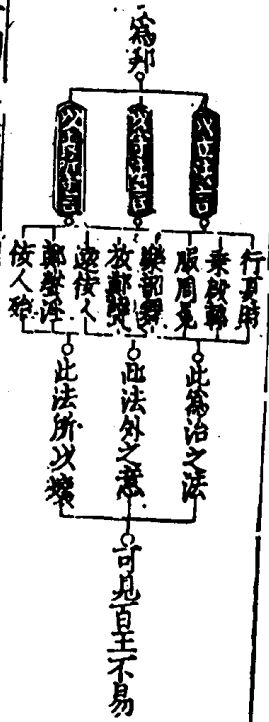 爲邦
以立法言
行夏時
乗殷輅
服周冕
樂韶舞
放鄭聲
遠佞人
鄭聲淫
佞人殆
此爲治之法
此法外之意
此法所以壞
可見百王不易